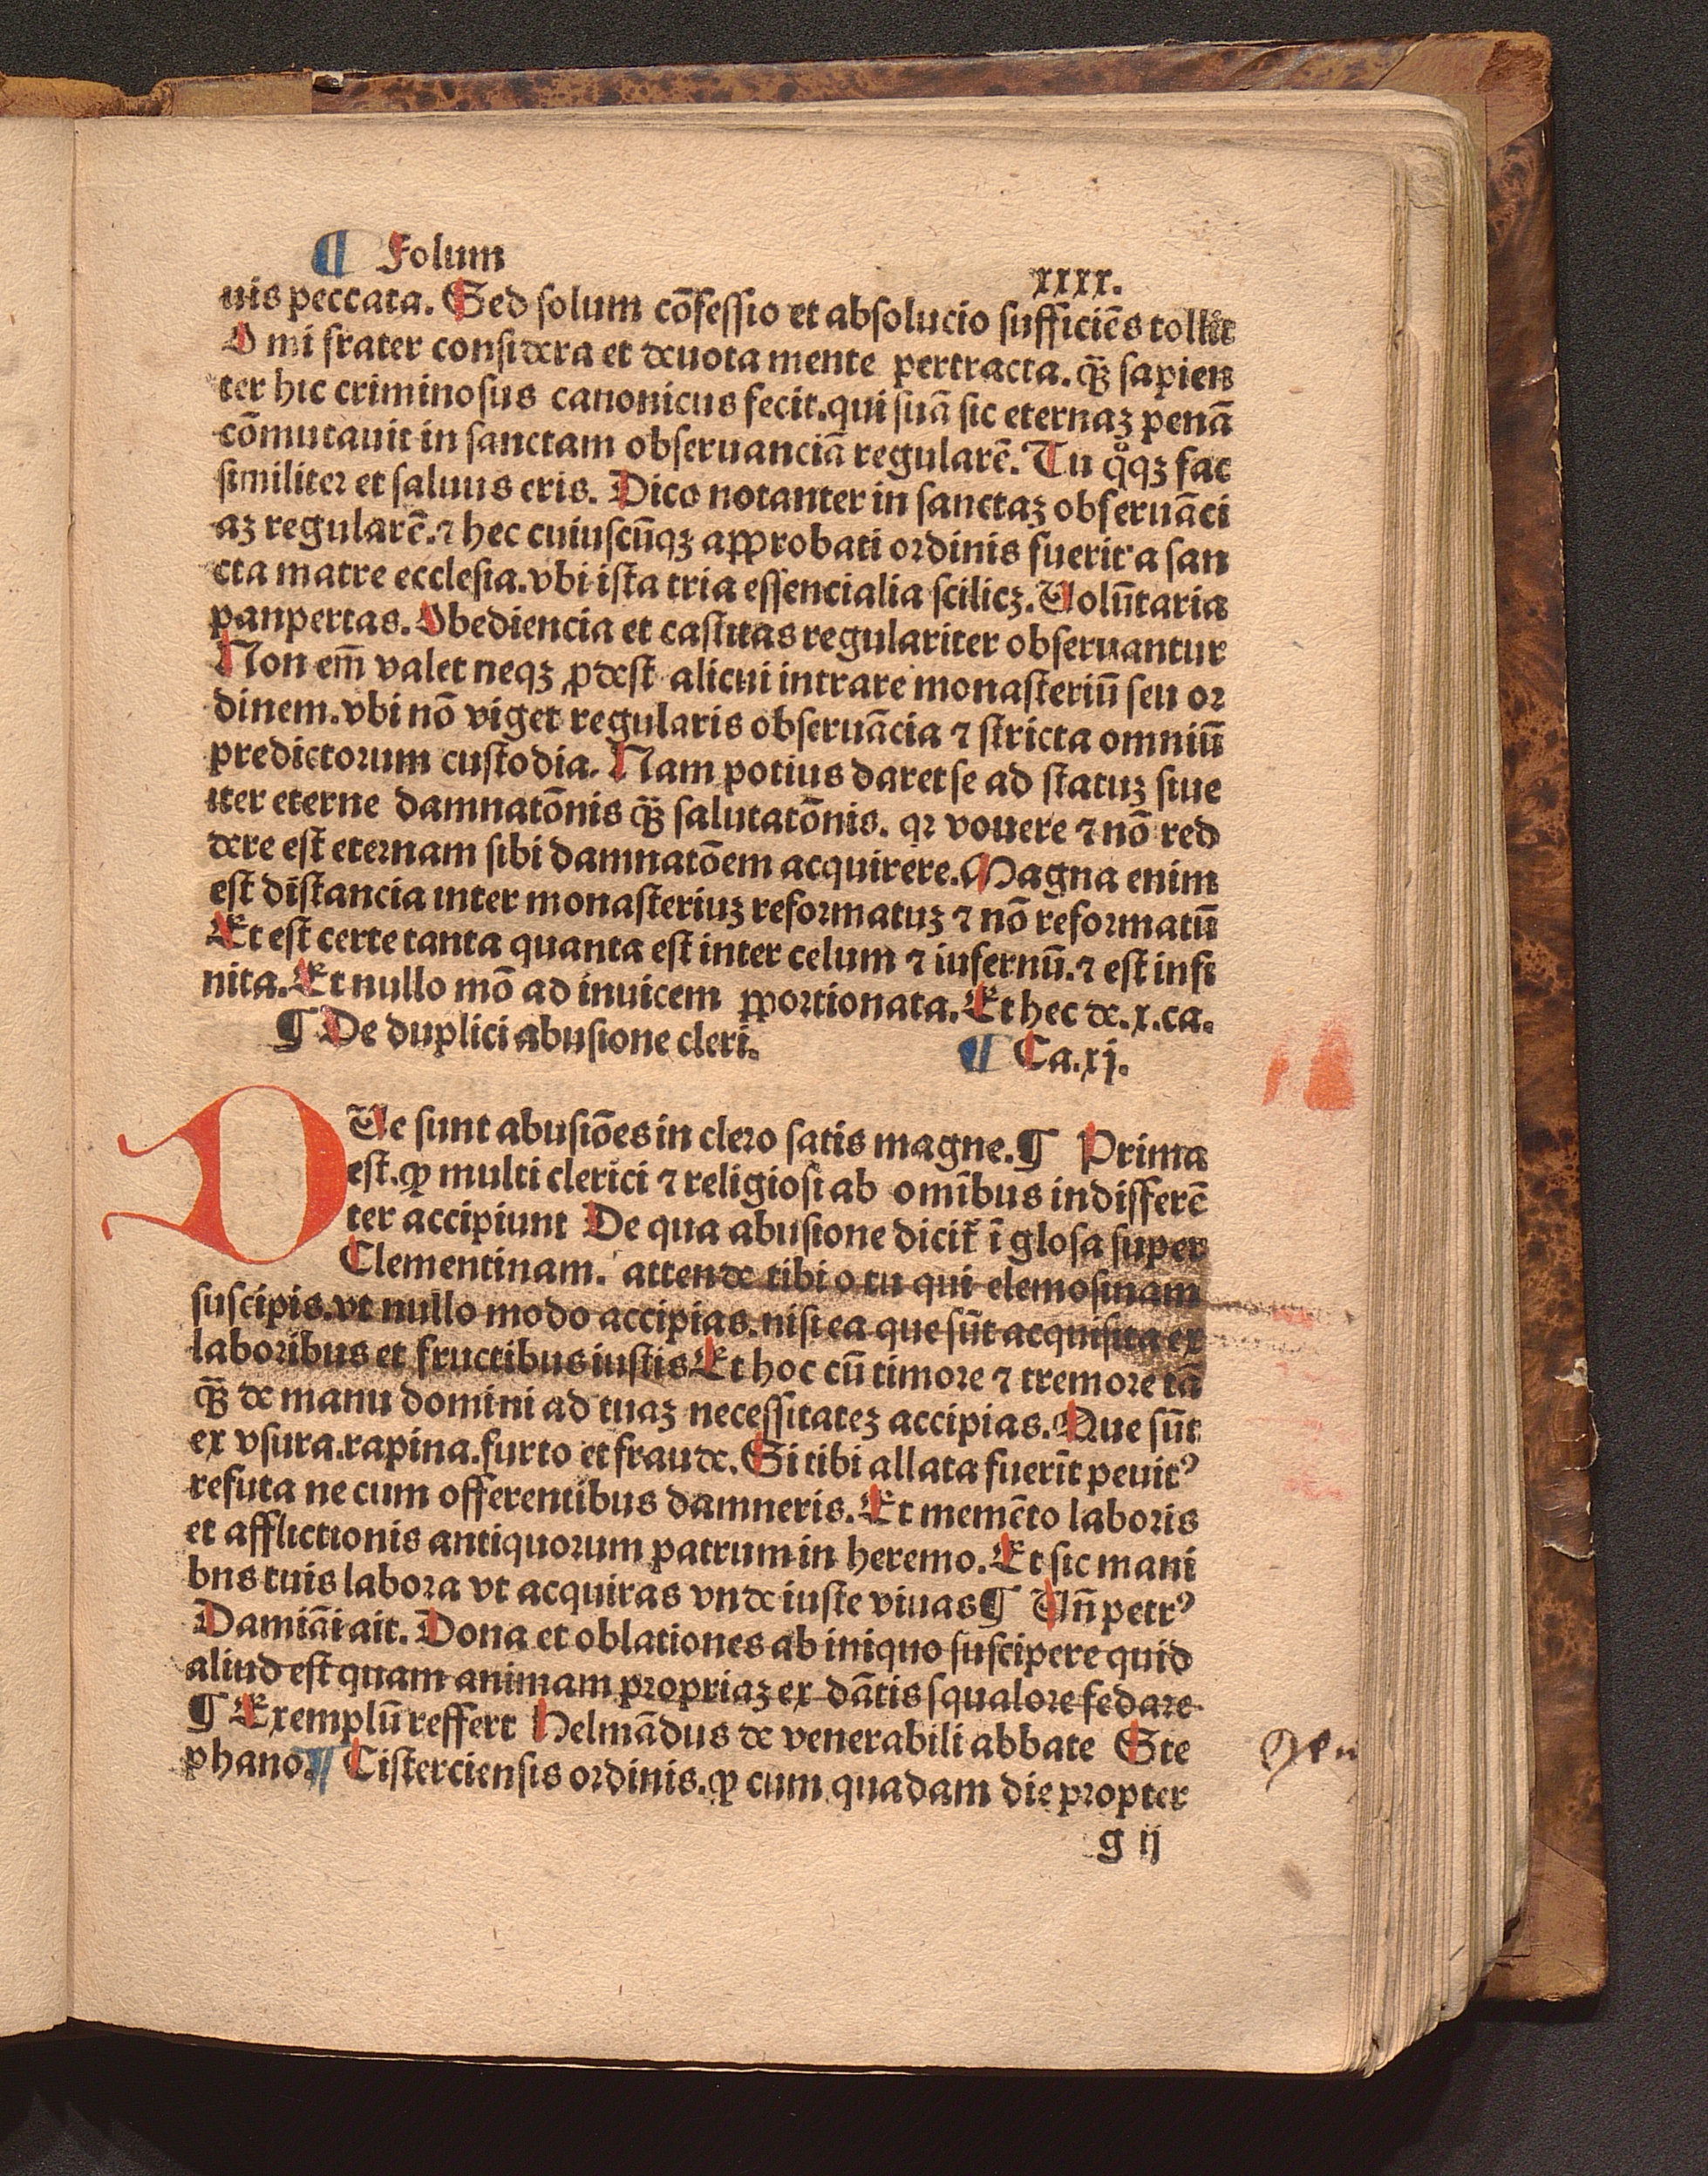 ¶ Folum xxxx.
uis peccata. Sed ſolum cõfeſſio et abſolucio ſufficiẽs tollit
O mi frater conſidera et deuota mente pertracta. q̃ꝫ ſapien
ter hic criminoſus canonicus fecit. qui ſuã ſic eternaꝫ penã
cõmutauit in ſanctam obſeruanciã regularẽ. Tu qͦqꝫ fac
ſimiliter et ſaluus eris. Dico notanter in ſanctaꝫ obſeruãci
aꝫ regularẽ. ⁊ hec cuiuſcũqꝫ approbati ordinis fuerit a ſan
cta matre eccleſia. vbi iſta tria eſſencialia ſcilicꝫ. Volũtaria
panpertas. Obediencia et caſtitas regulariter obſeruantur
Non em̃ valet neqꝫ ꝓdeſt alicui intrare monaſteriũ ſeu or
dinem. vbi nõ viget regularis obſeruãcia ⁊ ſtricta omniũ
predictorum cuſtodia. Nam potius daret ſe ad ſtatuꝫ ſiue
iter eterne damnatõnis q̃ꝫ ſalutatõnis. qꝛ vouere ⁊ nõ red
dere eſt eternam ſibi damnatõem acquirere. Magna enim
eſt diſtancia inter monaſteriuꝫ reformatuꝫ ⁊ nõ reformatũ
Et eſt certe tanta quanta eſt inter celum ⁊ iufernũ. ⁊ eſt infi
nita. Et nullo mõ ad inuicem ꝓportionata. Et hec de. x. ca.
¶ De duplici abuſione cleri. ¶ Ca. xj.
DVe ſunt abuſiões in clero ſatis magne. ¶ Prima
eſt. ꝙ multi clerici ⁊ religioſi ab omĩbus indifferẽ
ter accipiunt De qua abuſione dicit̃ ĩ gloſa ſuper
Clementinam. attende tibi o tu qui elemoſinam
ſuſcipis. vt nullo modo accipias. niſi ea que ſũt acquiſita ex
laboribus et fructibus iuſtis Et hoc cũ timore ⁊ tremore tã
q̃ꝫ de manu domini ad tuaꝫ neceſſitateꝫ accipias. Que ſũt
ex vſura. rapina. furto et fraude. Si tibi allata fuerĩt penit᾽
refuta ne cum offerentibus damneris. Et memẽto laboris
et afflictionis antiquorum patrum in heremo. Et ſic mani
bns tuis labora vt acquiras vnde iuſte viuas ¶ Vñ petr᾽
Damiãi ait. Dona et oblationes ab iniquo ſuſcipere quid
aliud eſt quam animam propriaꝫ ex dãtis ſqualore fedare
¶ Exemplũ reffert Helmãdus de venerabili abbate Ste
phano. ¶ Ciſtercienſis ordinis. ꝙ cum quadam die propter
g ij